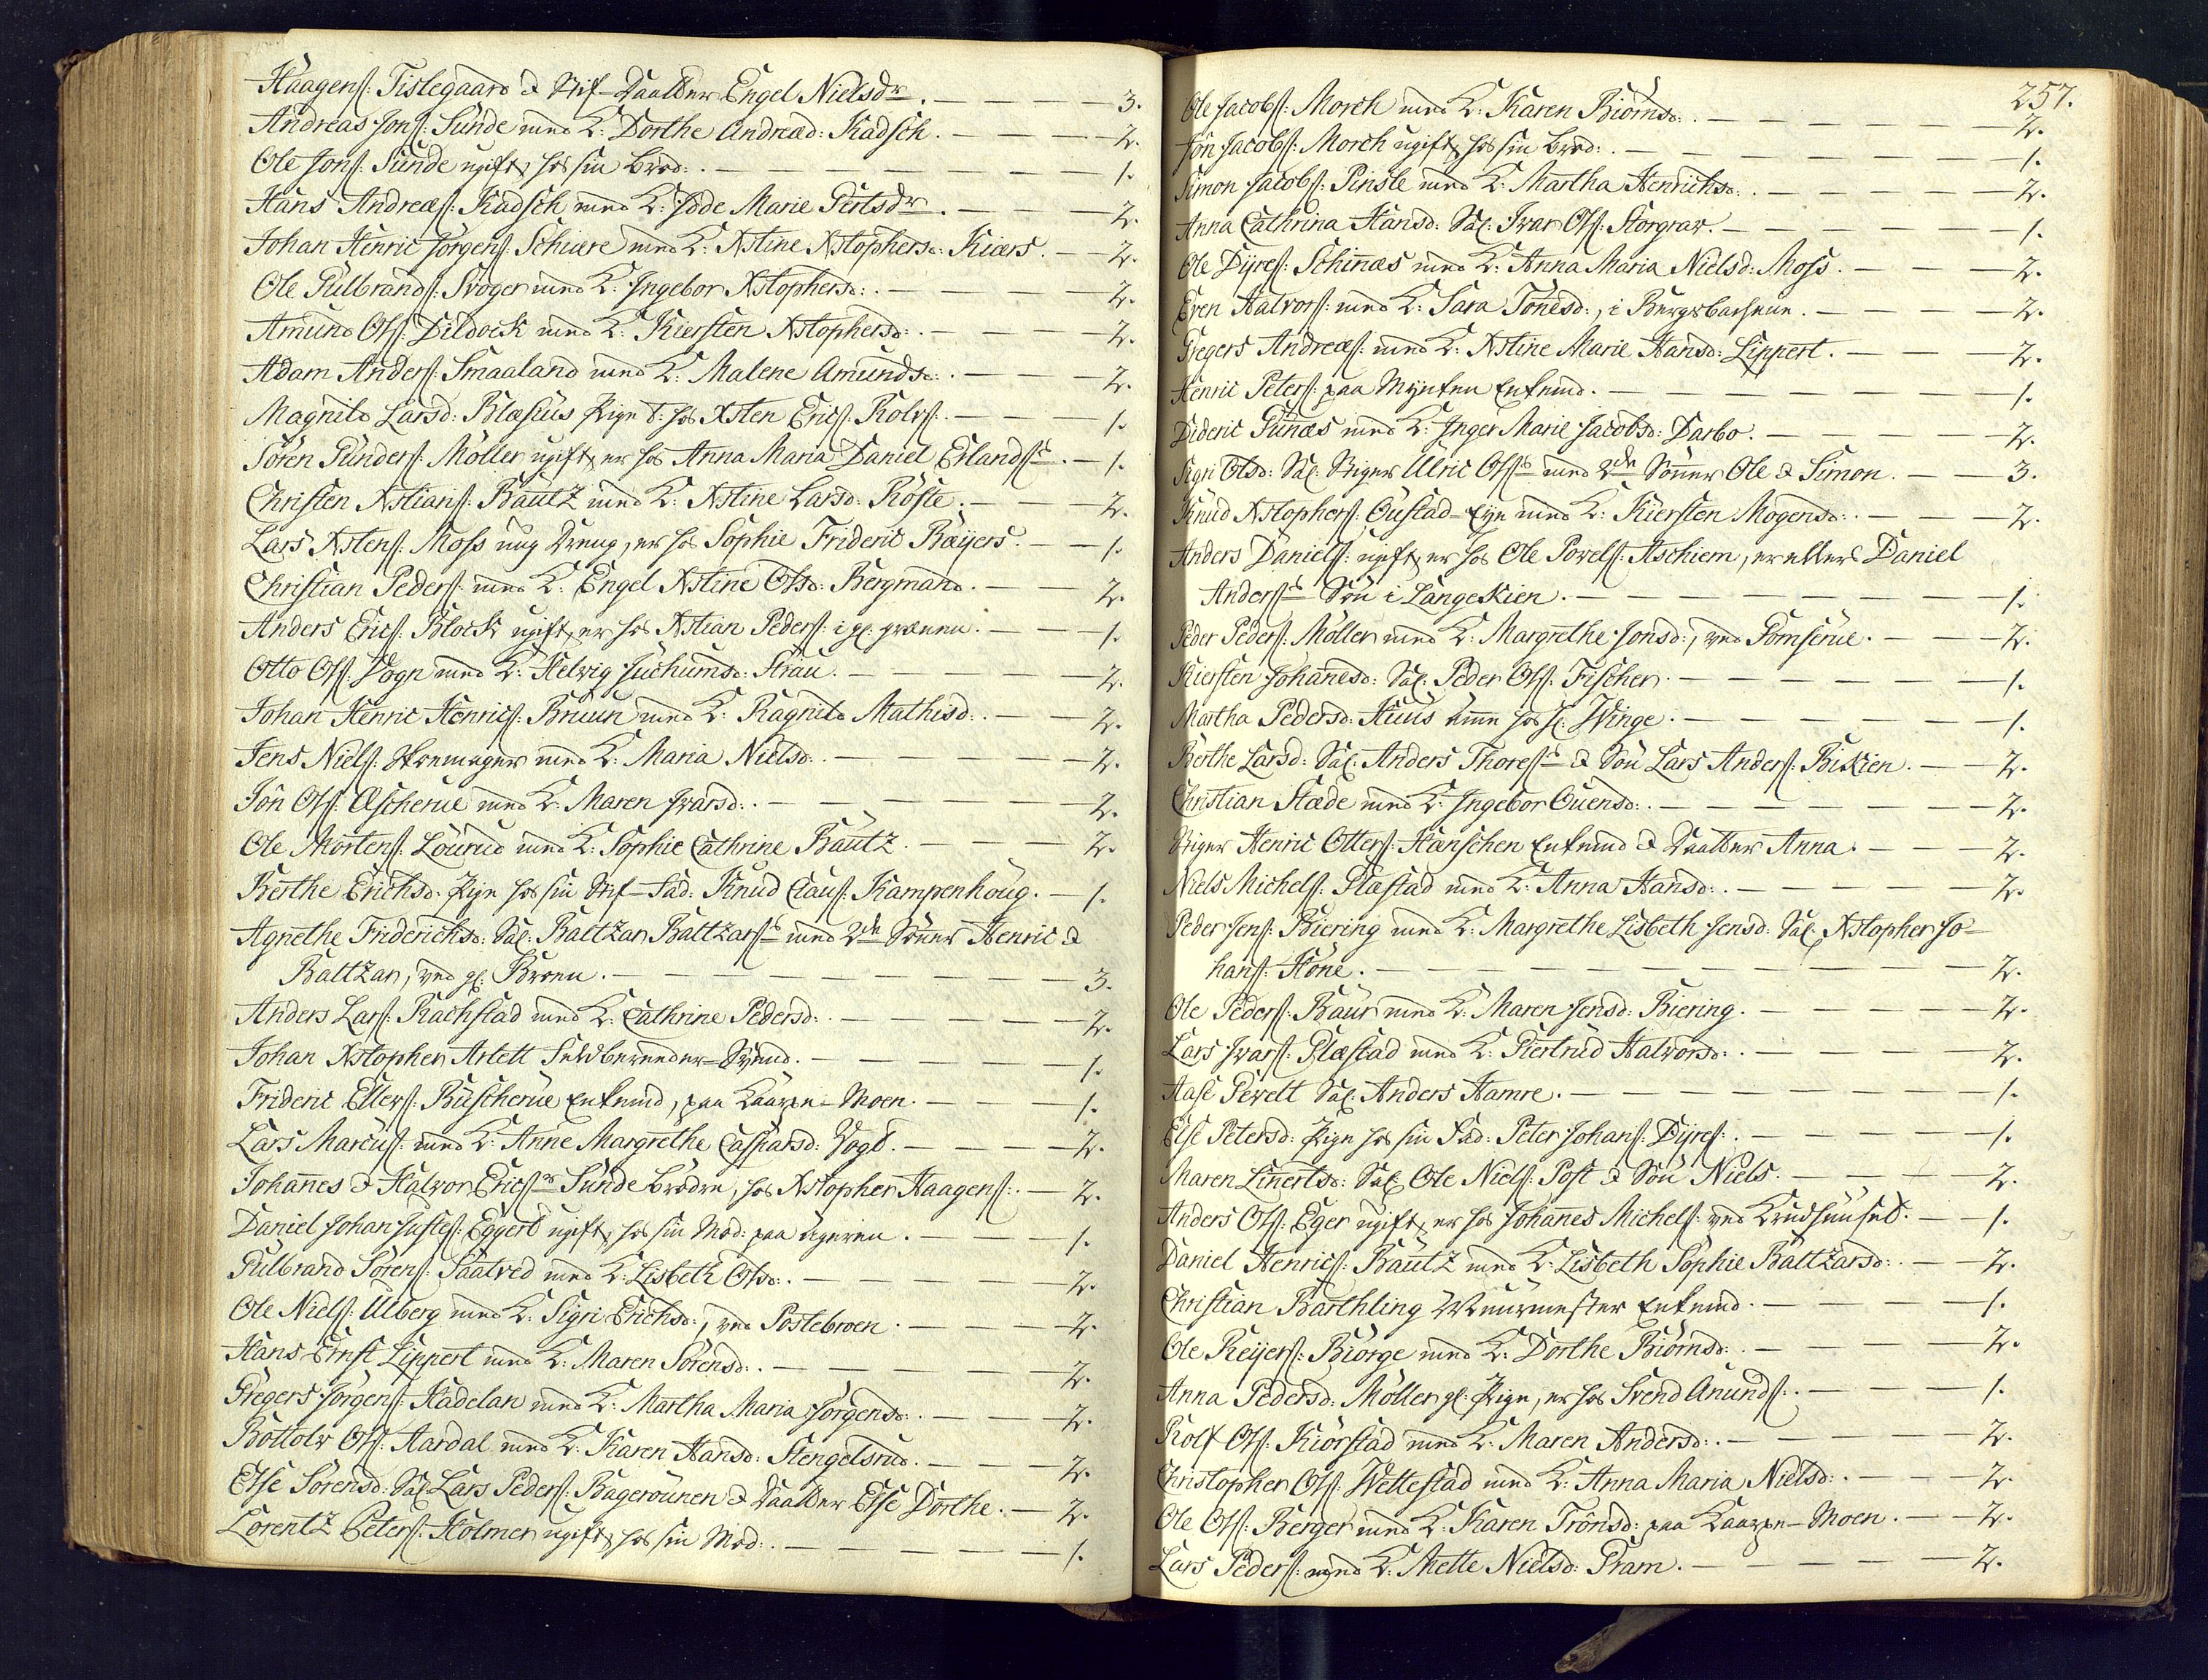 Haagenſ: Tislegaard & Stif-Daatter Engel Nielsdr. — 3.
Andreas Jonſ: Sunde med K: Dorthe Andreæd: Kadsch. — 2.
Ole Jonſ: Sunde ugift, hos sin Brod:. — 1.
Hans Andreæſ: Kadsch med K: Jdde Marie Gertsdr. — 2.
Johan Henric Jörgenſ: Schiære med K: Xstine Xstophersd: Kiærs. — 2.
Ole Gulbrandſ: Svoger med K: Ingebor Xstophersd:. — 2.
Amund Olſ: Dildock med K: Kiersten Xstophersd:. — 2.
Adam Anderſ: Smaaland med K: Malene Amundsd:. — 2.
Magnild Larsd: Blæsius Pige t: hos Xsten Ericſ: Rolvſ:. — 1.
Sören Gunderſ: Möller ugift, er hos Anna Maria Daniel Erlandſs. — 1.
Christen Xstianſ: Bautz med K: Xstine Larsd: Röste. — 2.
Lars Xstenſ: Moss ung Dreng, er hos Sophie Frideric Bæyers. — 1.
Christian Pederſ: med K: Engel Xstine Olsd: Bergmand. — 2.
Anders Ericſ: Block ugift, er hos Xstian Pederſ: i gl: — 1.
Otto Olſ: Vogn med K: Helvig Juchumsd: Strau. — 2.
Johan Henric Henricſ: Bruun med K: Ragnild Mathisd:. — 2.
Jens Nielſ: Skremager med K: Maria Nielsd:. — 2.
Jön Olſ: Æscherue med K: Maren Ivarsd:. — 2.
Ole Mortenſ: Löurud med K: Sophie Cathrine Bautz. — 2.
Berthe Erichsd: Pige hos sin Stif-Fad: Knud Clauſ: Kampenhoug. — 1.
Agnethe Friderichsd: Sal: Baltzar Baltzarſs med 2de Sönner Henric &
Baltzar, ved gl: Broen. — 3.
Anders Larſ: Rachstad med K: Cathrine Pedersd:. — 2.
Johan Xstopher Artelt Svend. — 1.
Frideric Ellevſ: Buscherue Enkemd, paa Kaarpe-Moen. — 1.
Lars Marcuſ: med K: Anne Margrethe Caspersd: Vogt. — 2.
Johañes & Halvor Ericſer Sunde Brödre, hos Xstopher Haagenſ:. — 2.
Daniel Johan Justeſ: Eggert ugift, hos sin Mod: paa Ageren. — 1.
Gulbrand Sörenſ: Saatved med K: Lisbeth Olsd:. — 2.
Ole Nielſ: Ulberg med K: Sigri Erichsd:, ved Postebroen. — 2.
Hans Ernst Lippert med K: Maren Sörensd:. — 2.
Gregers Jörgenſ: Hadelan med K: Martha Maria Jörgensd:. — 2.
Bottolv Olſ: Aardal med K: Karen Hansd: Stengelsrud. — 2.
Else Sörensd: Sal: Lars Pederſ: Bageröunen & Daatter Else Dorthe. — 2.
Lorentz Peterſ: Holmer ugift, hos sin Mod:. — 1.
257.
Ole Jacobſ: Morch med K: Karen Biörnsd:. — 2.
Jön Jacobſ: Morch ugift, hos sin Brod:. — 1.
Simon Jacobſ: Pinsle med K: Martha Henrichsd:. — 2.
Anna Cathrina Hansd: Sal: Ivar Olſ: Storgrav. — 1.
Ole Dijreſ: Schinæs med K: Anna Maria Nielsd: Moss. — 2.
Even Halvorſ: med K: Sara Tönesd:, i Bergsbachene. — 2.
Gregers Andreæſ: med K: Xstine Marie Hansd: Lippert. — 2.
Henric Peterſ: paa Mynten Enkemd. — 1.
Dideric Günæs med K: Inger Marie Jacobsd: Darbo. — 2.
Sigri Olsd: Sal: Stiger Ulric Olſs med 2de Sönner Ole & Simon. — 3.
Knud Xstopherſ: Oustad-Eje med K: Kiersten Mogensd:. — 2.
Anders Danielſ: ugift, er hos Ole Povelſ: Aschiem, er ellers Daniel
Anderſs Sön i Langekien. — 1.
Peder Pederſ: Möller med K: Margrethe Jonsd:, ved Pomperue. — 2.
Kiersten Johañesd: Sal: Peder Olſ: Fischer. — 1.
Martha Pedersd: Huus Amme hos Hr: Winge. — 1.
Berthe Larsd: Sal: Anders Thoreſs & Sön Lars Anderſ: Bikien. — 2.
Christian Stæde med K: Ingebor Ouensd:. — 2.
Stiger Henric Otterſ: Hanschen Enkemd & Daatter Anna. — 2.
Niels Michelſ: Plæstad med K: Anna Hansd:. — 2.
Peder Jenſ: Biering med K: Margrethe Lisbeth Jensd: Sal: Xstopher Jo-
hanſ: Höne. — 2.
Ole Pederſ: Baur med K: Maren Jensd: Biering. — 2.
Lars Ivarſ: Plæstad med K: Giertrud Halvorsd:. — 2.
Aase Pevelt Sal: Anders Hamre. — 1.
Else Petersd: Pige hos sin Fad: Peter Johanſ: Dijreſ:. — 1.
Maren Linertsd: Sal: Ole Nielſ: Post & Sön Niels. — 2.
Anders Olſ: Eger ugift, er hos Johañes Michelſ: ved Krudhuuset. — 1.
Daniel Henricſ: Bautz med K: Lisbeth Sophie Baltzarsd:. — 2.
Christian Barthling Muurmester Enkemd. — 1.
Ole Reijerſ: Biörge med K: Dorthe Biörnsd:. — 2.
Anna Pedersd: Möller gl: Pige, er hos Svend Anundſ:. — 1.
Rolf Olſ: Kiörstad med K: Maren Andersd:. — 2.
Christopher Olſ: Wettestad med K: Anna Maria Nielsd:. — 2
Ole Olſ: Berger med K: Karen Trönsd: paa Kaarpe-Moen. — 2.
Lars Pederſ: med K: Mette Nielsd: Pram. — 2.